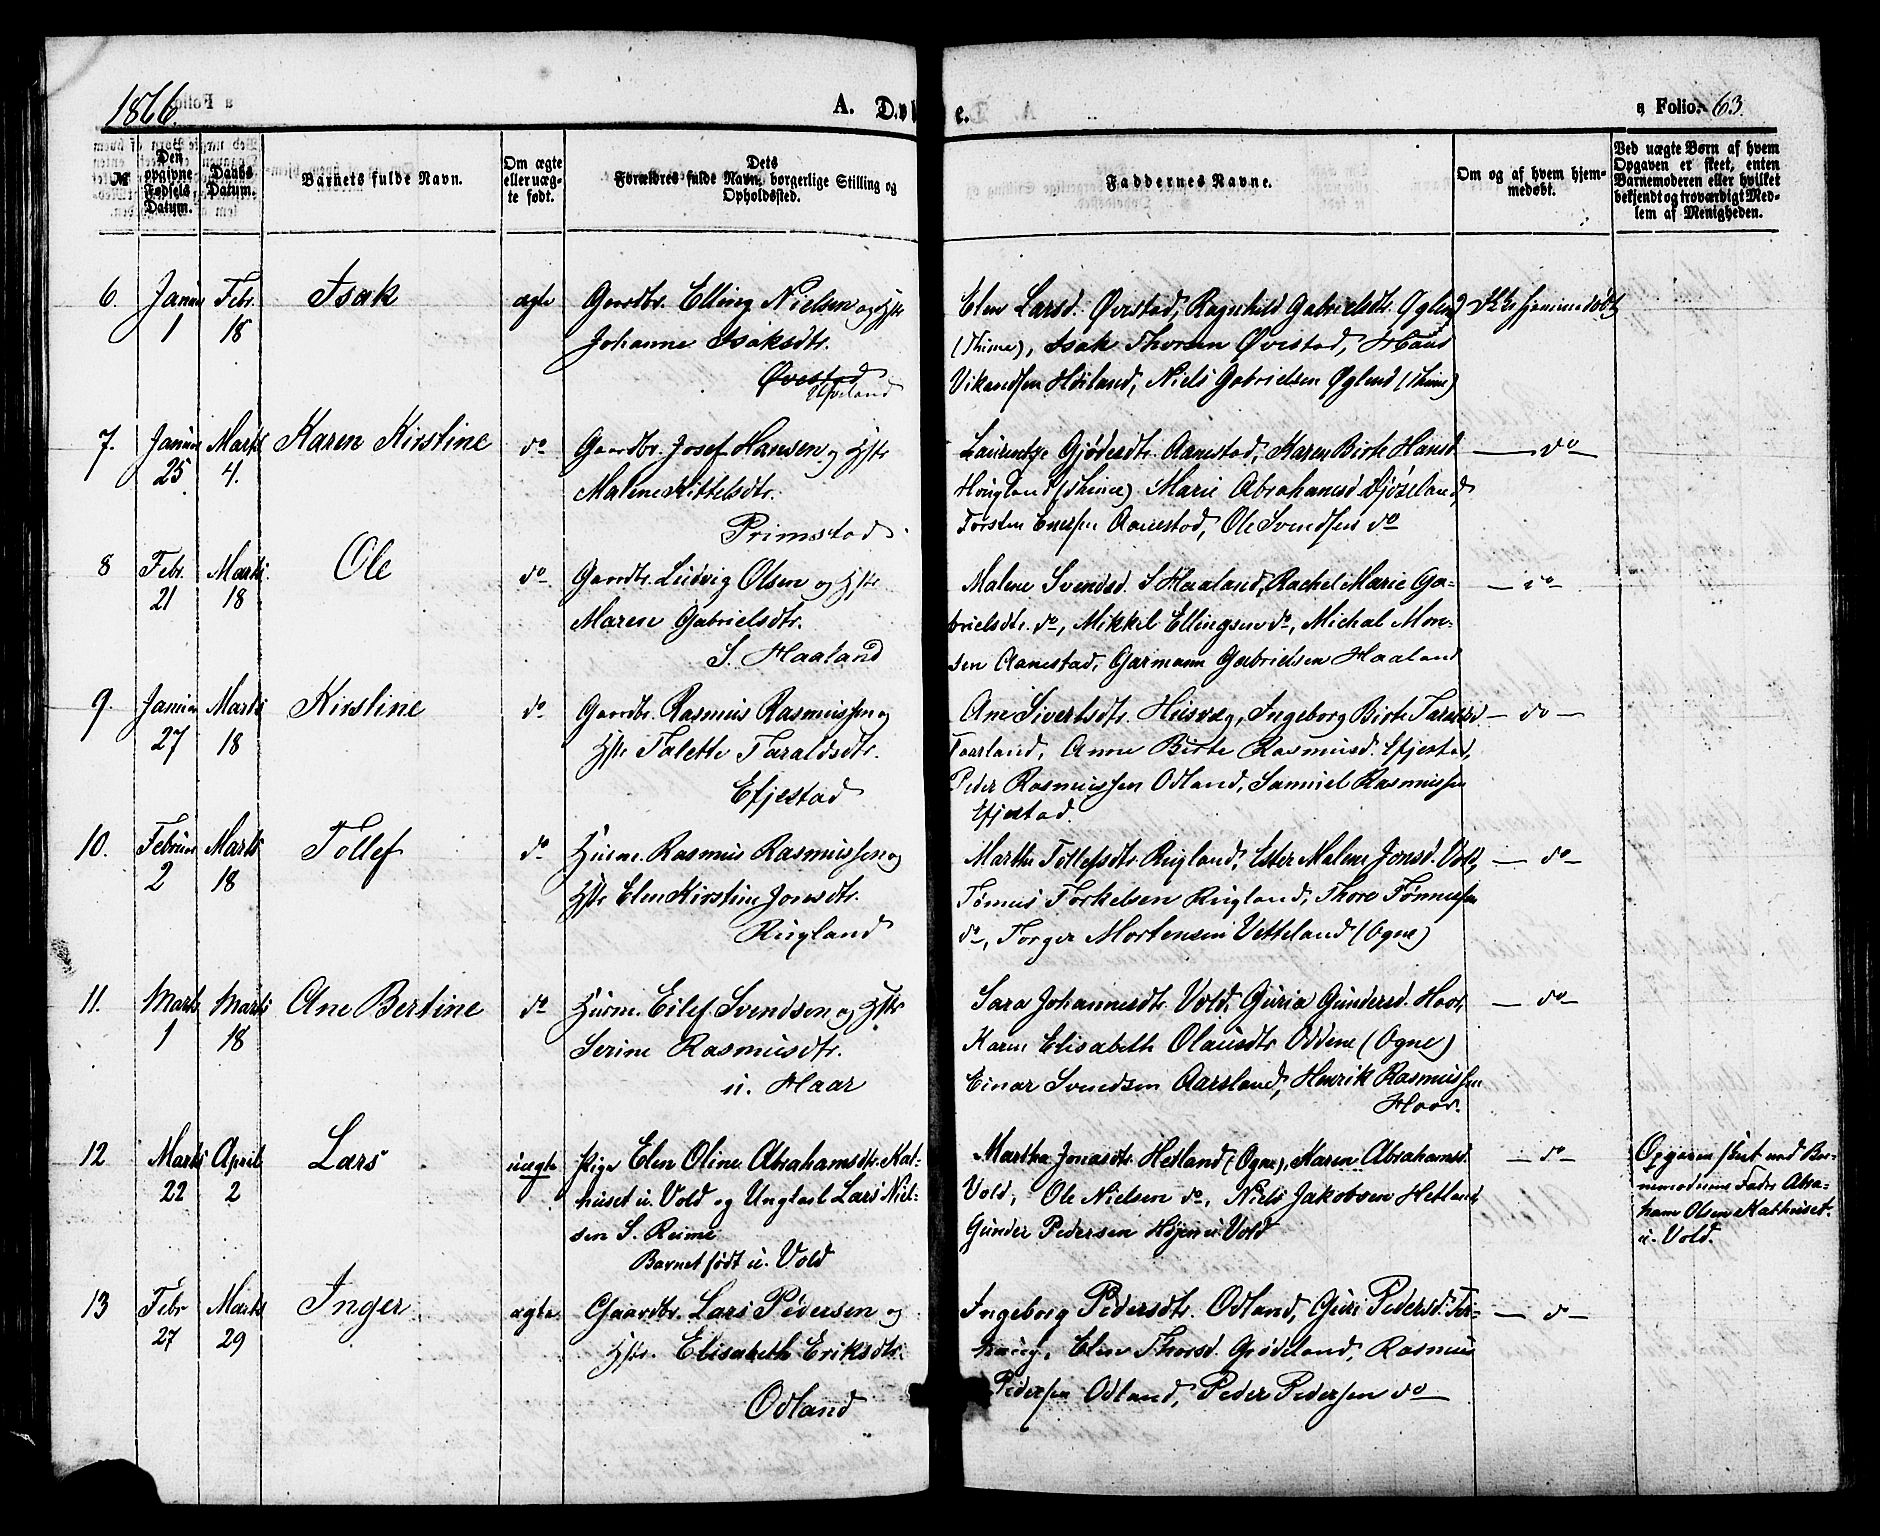 1866.
A. Døbte.
a Folio 63.
№
Den opgivne Fødsels Datum.
Daabs Datum.
Barnets fulde Navn.
Om ægte eller uægte født.
Dets Forældres fulde Navn, borgerlige Stilling og Opholdssted.
Faddernes Navne.
Om og af hvem hjemmedøbt.
Ved uægte Børn af hvem
Opgaven er skeet, enten
Barnemoderen eller hvilket
bekjendt og troværdigt Med-
lem af Menigheden.
6. Januar 1 Febr. 18 Isak ægte
Gaardbr. Elling Nielsen og Hstr
Johanne Isaksdtr.
Øvestad
Ueland
Elen Larsd. Øvestad, Ragnhild Gabrielsdtr. Øglend
(Thime), Isak Thorsen Øvestad,
Høiland, Niels Gabrielsen Øglend (Thime)
Ikke hjemmedøbt
7. Januar 25 Marts 4. Karen Kirstine do
Gaardbr. Josef Hansen og Hstr
Malene Kittelsdtr.
Primstad
Laurentze Gjødesdtr. Aanestad, Karen Birte Hansd.
Hougland (Thime). Marie Abrahamsd.
Torsten Enersen Aanestad, Ole Svendsen do
do
8 Febr. 21 Marts 18 Ole do
Gaardbr. Ludvig Olsen og Hstr
Maren Gabrielsdtr.
S. Haaland
Malene Svendsd. S. Haaland, Rachel Marie Ga-
brielsdtr. do, Mikkel Ellingsen do, Michal Mon-
sen Aanestad, Garmann Gabrielsen Haaland
do
9 Januar 27 Marts 18 Kirstine do
Gaardbr. Rasmus Rasmussen og
Hstr Talette Taraldsdtr.
Efjestad
Ane Sivertsdtr. Husvæg, Ingeborg Birte Taraldsd
Taarland, Anne Birte Rasmusd. Efjestad,
Peder Rasmussen Odland, Samuel Rasmussen
Efjestad.
do
10. Februar 2 Marts 18 Tollef do
Huusm. Rasmus Rasmussen og
Hstr Elen Kirstine Jonsdtr.
Rugland
Marthe Tollefsdtr. Rugland, Ester Malene Jonsd. Vold,
Tønnes Torkelsen Rugland, Thore Tønnessen
do, Torger Mortensen Vetteland (Ogne)
do
11. Marts 1 Marts 18 Ane Bertine do
Huusm. Eilef Svendsen og Hstr
Serine Rasmusdtr.
u. Haar
Sara Johannesdtr. Vold, Guria Gundersd. Haar,
Karen Elisabeth Olausdtr Oddene (Ogne)
Einar Svendsen Aarsland, Henrik Rasmussen
Haar.
do
12 Marts 22 April 2 Lars uægte
Pige Elen Oline Abrahamsdtr. Kat-
huset u. Vold og Ungkarl Lars Niel-
sen S. Reime
Barnet født u. Vold
Martha Jonasdtr. Hetland (Ogne), Karen Abrahamsd.
Vold, Ole Nielsen do, Niels Jakobsen Hetland
Gunder Pedersen Højen u. Vold
do
Opgaven skeet ved Bar-
nemoderens Fader Abra-
ham Olsen Kathuset
u. Vold.
13 Febr 27 Marts 29 Inger ægte
Gaardbr. Lars Pedersen og
Hstr. Elisabeth Eriksdtr.
Odland
Ingeborg Pedersdtr. Odland, Guri Pedersd. Ter-
haug, Elen Thorsd. Grødeland, Rasmus
Pedersen Odland, Peder Pedersen do
do